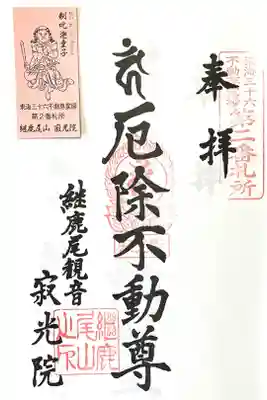 奉拝
東海三十六
不動尊霊場
第二番札所
厄除不動尊
継鹿尾観音
寂光院
継鹿
尾山
之印
制吒迦童子
東海三十六不動尊霊場
第2番札所
継鹿尾山 寂光院